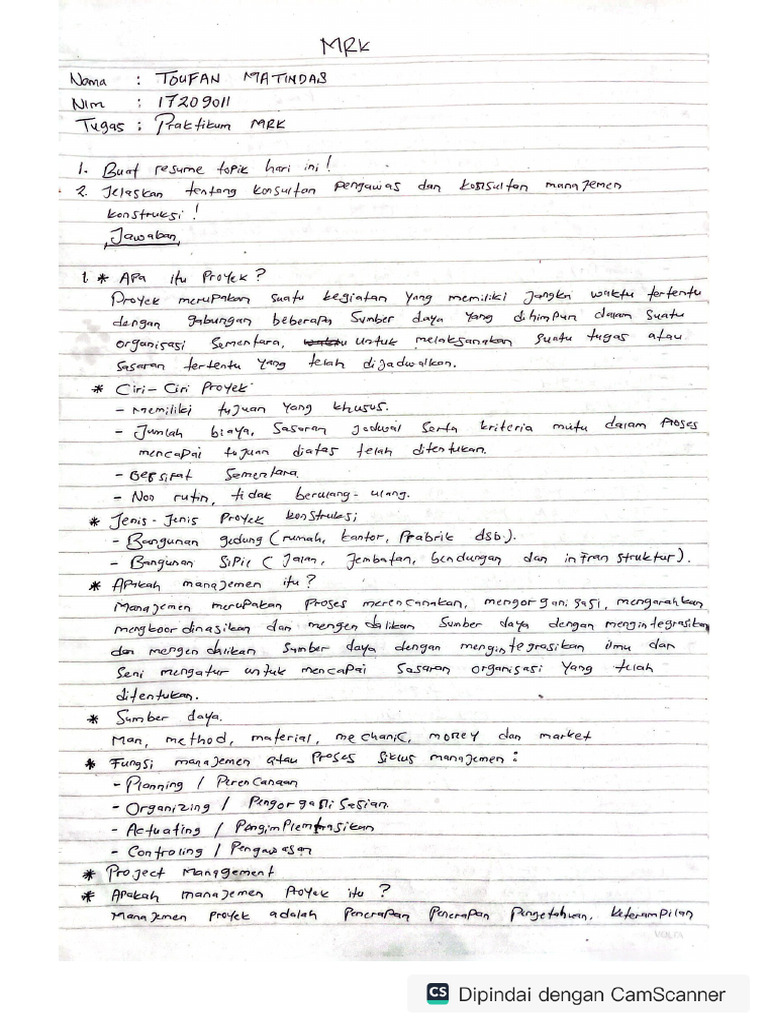 MRK
Nama : TOUFAN MATINDAS
Nim : 17209011
Tugas : Praktikum MRK
1. Buat resume topik hari ini!
2. Jelaskan tentang konsultan pengawas dan konsultan manajemen
konstruksi!
Jawaban
1. * Apa itu Proyek?
Proyek merupakan suatu kegiatan yang memiliki jangka waktu tertentu
dengan gabungan beberapa sumber daya yang dihimpun dalam suatu
organisasi sementara, untuk melaksanakan suatu tugas atau
sasaran tertentu yang telah dijadwalkan.
* Ciri-Ciri Proyek:
- Memiliki tujuan yang khusus.
- Jumlah biaya, sasaran jadwal serta kriteria mutu dalam Proses
mencapai tujuan diatas telah ditentukan.
- Bersifat sementara.
- Non rutin, tidak berulang-ulang.
* Jenis-Jenis Proyek konstruksi
- Bangunan gedung (rumah, kantor, Prabrik dsb.).
- Bangunan sipil (Jalan, Jembatan, bendungan dan infran struktur).
* Apakah manajemen itu?
Manajemen merupakan Proses merencanakan, mengorganisasi, mengarahkan
mengkoordinasikan dan mengendalikan sumber daya dengan mengintegrasikan
dan mengendalikan sumber daya dengan mengintegrasikan ilmu dan
Seni mengatur untuk mencapai sasaran organisasi yang telah
ditentukan.
* Sumber daya.
Man, method, material, mechanic, money dan market
* Fungsi manajemen atau Proses siklus manajemen :
- Planning / Perencanaan
- Organizing / Pengorganisasian
- Actuating / Pengimplementasikan
- Controling / Pengawasan
* Project Management
* Apakah manajemen Proyek itu?
Manajmen Proyek adalah Penerapan Penerapan Pengetahuan, keterampilan
CS Dipindai dengan CamScanner